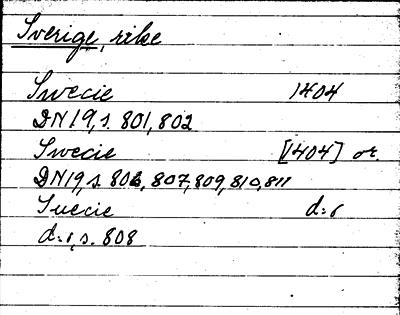 Sverige, rike
Swecie 1404
DN19, s. 801, 802
Swecie [1404] or.
DN19, s. 806, 807, 809, 810, 811
Suecie d:o
d:o, s. 808